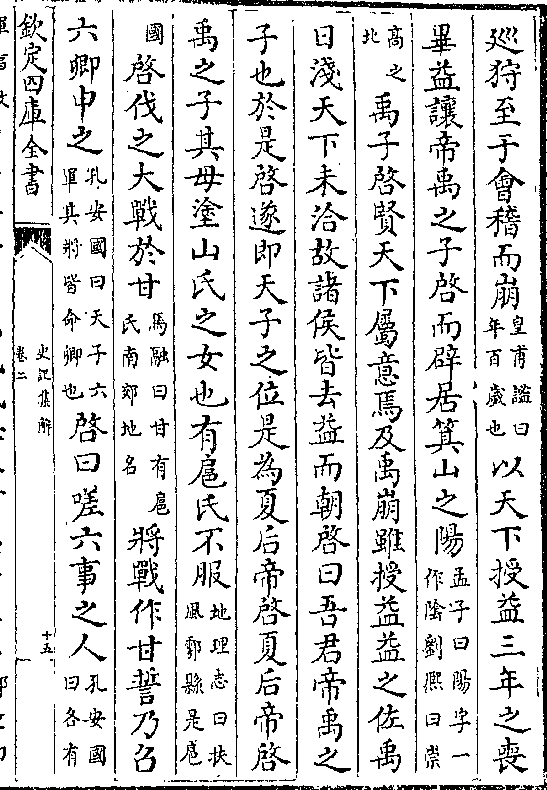 廵狩至于會稽而崩皇甫謐曰年百歳也以天下授益三年之喪
畢益讓帝禹之子啓而辟居箕山之陽孟子曰陽字一作隂劉熙曰崇
髙之北禹子啓賢天下屬意焉及禹崩雖授益益之佐禹
日淺天下未洽故諸侯皆去益而朝啓曰吾君帝禹之
子也於是啓遂即天子之位是為夏后帝啓夏后帝啓
禹之子其母塗山氏之女也有扈氏不服地理志曰扶風鄠縣是扈
國啓伐之大戰於甘馬融曰甘有扈氏南郊地名將戰作甘誓乃召
六卿申之孔安國曰天子六軍其將皆命卿也啓曰嗟六事之人孔安國曰各有
欽定四庫全書
史記集解
卷二
十五